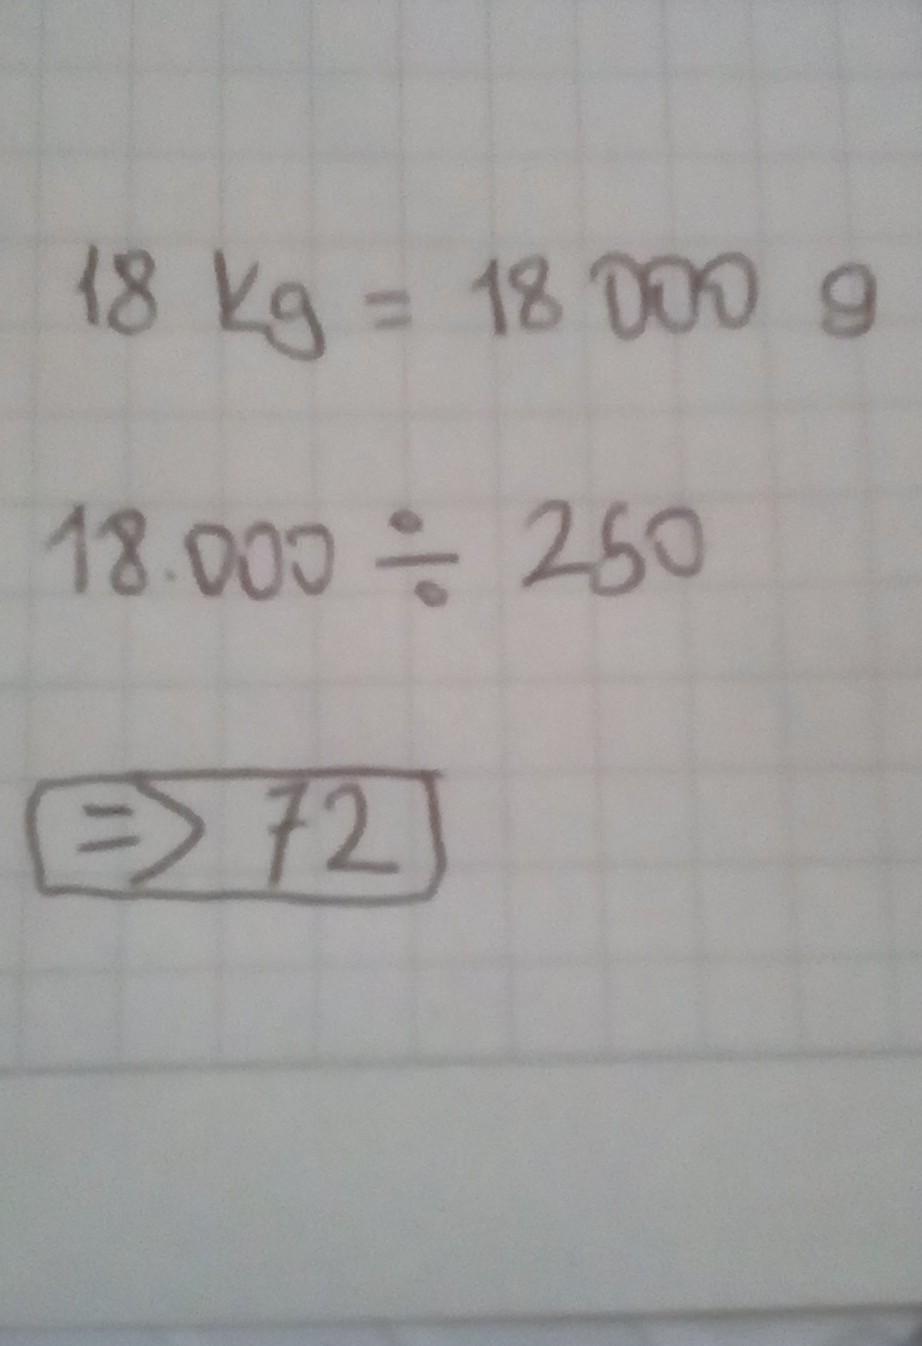 18 Kg = 18 000 g
18.000 ÷ 250
=> 72